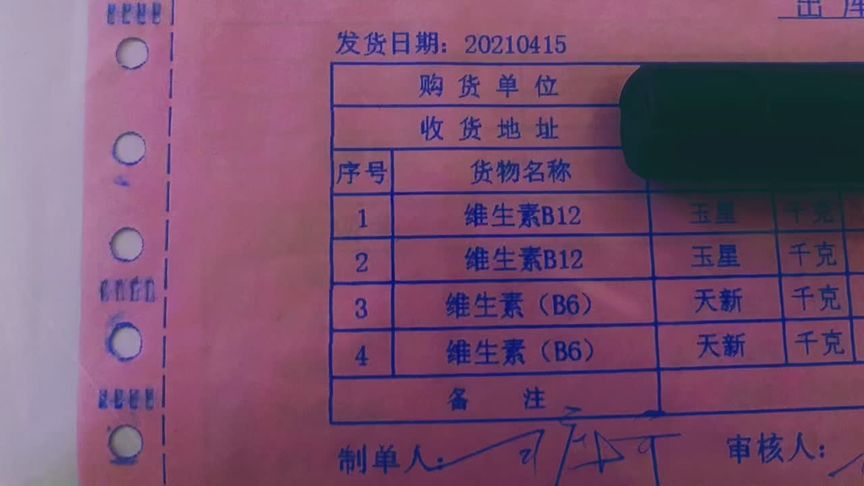 出库
发货日期：20210415
购货单位
收货地址
序号 货物名称
1 维生素B12 玉星 千克
2 维生素B12 玉星 千克
3 维生素（B6） 天新 千克
4 维生素（B6） 天新 千克
备 注
制单人： 审核人：